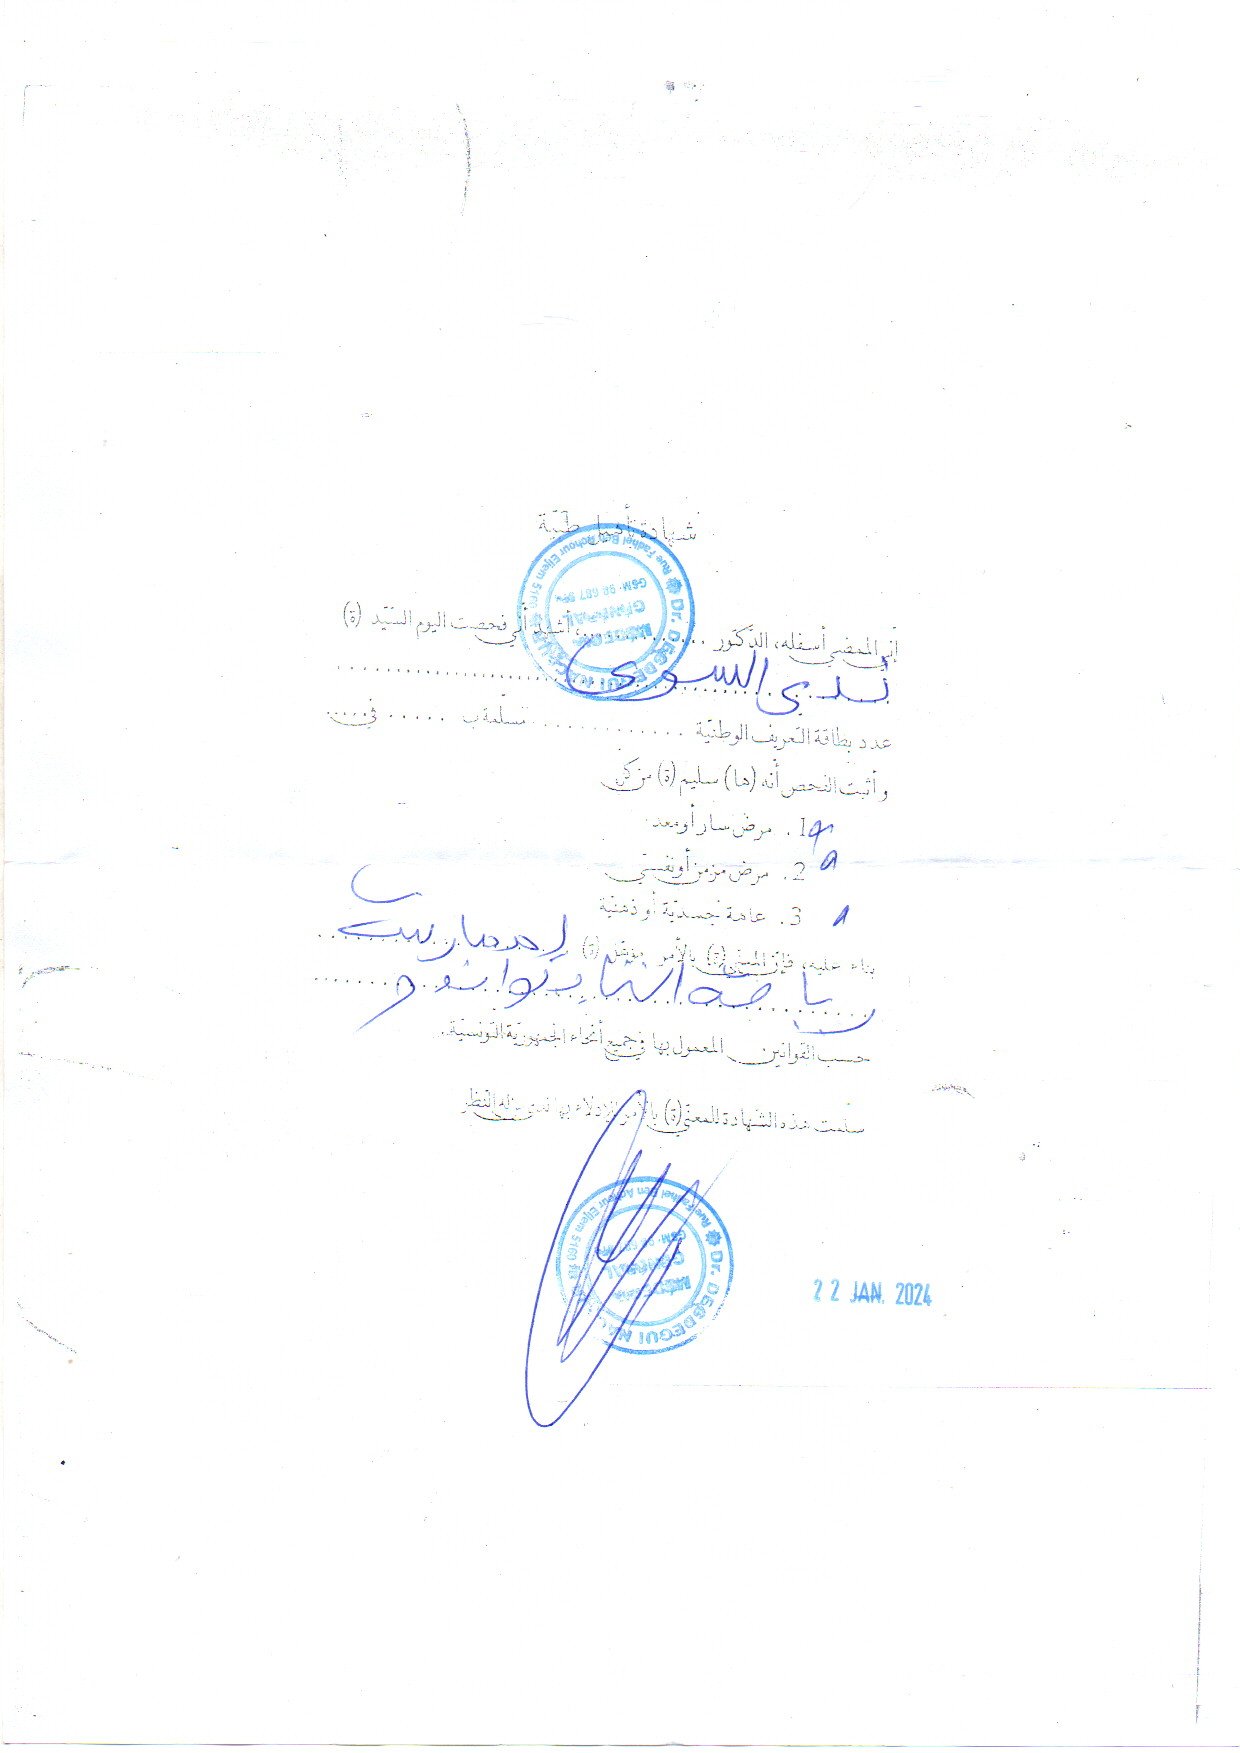 شهادة تأهيل طبّيّة
إنّي الممضي أسفله، الدّكتور ............، أشهد أنّي فحصت اليوم السّيّد (ة)
السوي
عدد بطاقة التّعريف الوطنيّة ............. مسلّمة ب ..... في .....
وأثبت الفحص أنّه (ها) سليم (ة) من كلّ
1. مرض سار أو معد.
2. مرض مزمن أو نفسيّ.
3. عاهة جسديّة أو ذهنيّة
بناء عليه، فإنّ المعني (ة) بالأمر مؤهّل (ة) لممارسة
رياضة التايكواندو
حسب القوانين المعمول بها في جميع أنحاء الجمهوريّة التّونسيّة.
سلّمت هذه الشّهادة للمعني (ة) بالأمر للإدلاء بها لدى من له النّظر
Dr. DEGDEGUI
Rue Fadhel Ben Achour Eljem 5160
MEDECIN
GENERAL
Dr. DEGDEGUI
Rue Fadhel Ben Achour Eljem 5160
22 JAN. 2024